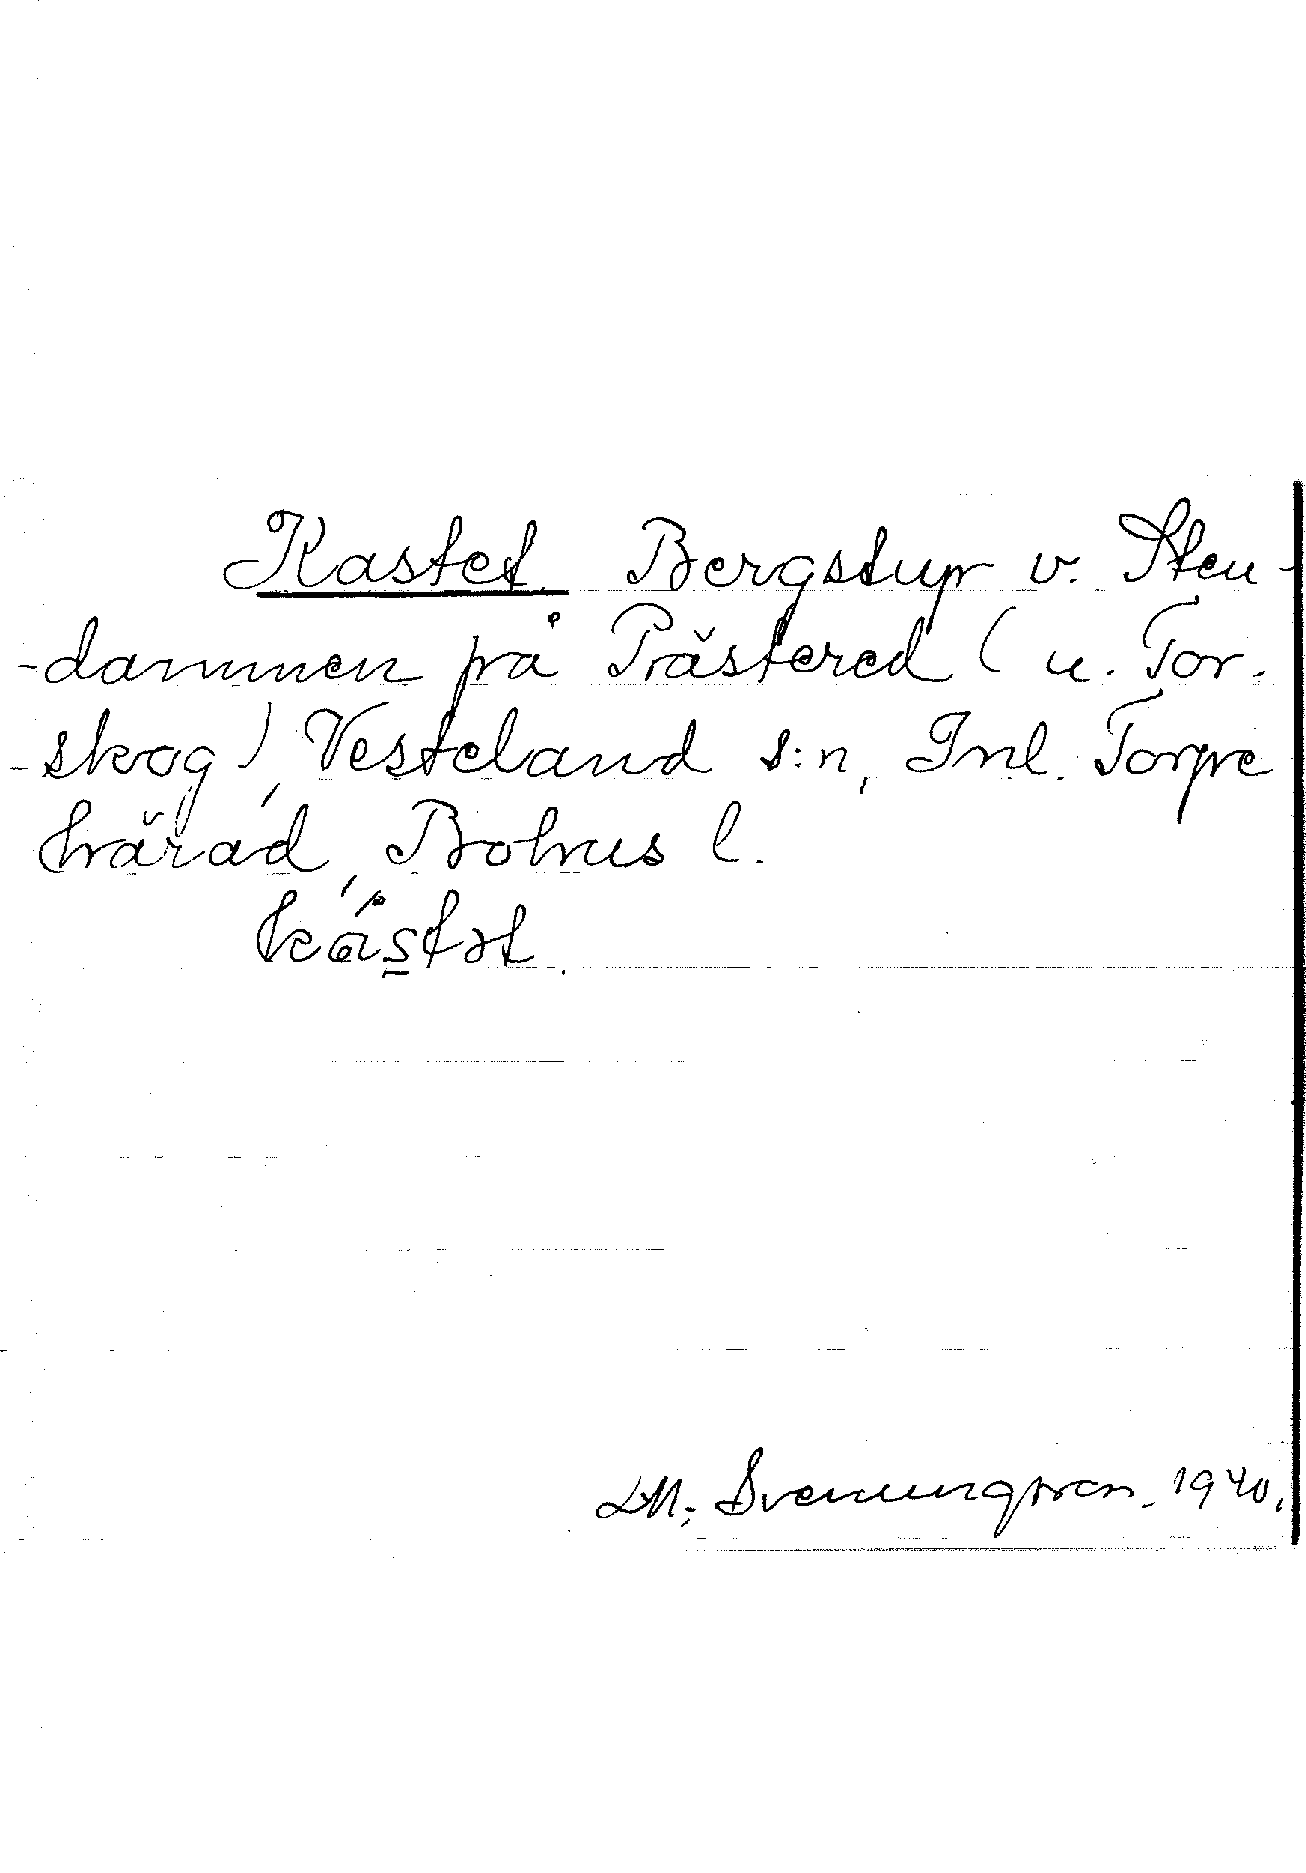 Kastet. Bergstup v. Sten-
-dammen på Prästered (u. Tor-
-skog), Vesteland s:n, Inl. Torpe
härad, Bohus l.
kastət.
LM. Svenungsson. 1940.